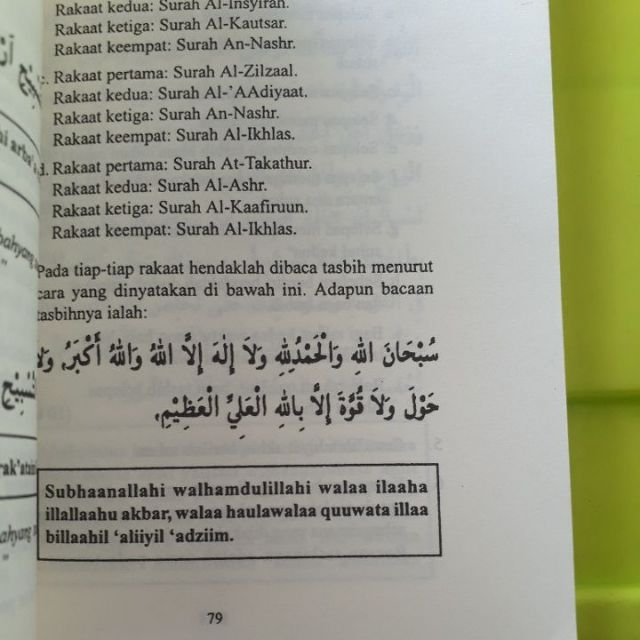 Rakaat kedua: Surah Al-Insyirah.
Rakaat ketiga: Surah Al-Kautsar.
Rakaat keempat: Surah An-Nashr.
c. Rakaat pertama: Surah Al-Zilzaal.
Rakaat kedua: Surah Al-'AAdiyaat.
Rakaat ketiga: Surah An-Nashr.
Rakaat keempat: Surah Al-Ikhlas.
d. Rakaat pertama: Surah At-Takathur.
Rakaat kedua: Surah Al-Ashr.
Rakaat ketiga: Surah Al-Kaafiruun.
Rakaat keempat: Surah Al-Ikhlas.
Pada tiap-tiap rakaat hendaklah dibaca tasbih menurut
cara yang dinyatakan di bawah ini. Adapun bacaan
tasbihnya ialah:
سُبْحَانَ اللهِ وَالْحَمْدُلِلّٰهِ وَلَا إِلٰهَ إِلَّا اللهُ وَاللهُ أَكْبَرُ، وَلَا
حَوْلَ وَلَا قُوَّةَ إِلَّا بِاللهِ الْعَلِيِّ الْعَظِيْمِ،
Subhaanallahi walhamdulillahi walaa ilaaha
illallaahu akbar, walaa haulawalaa quuwata illaa
billaahil 'aliiyil 'adziim.
79